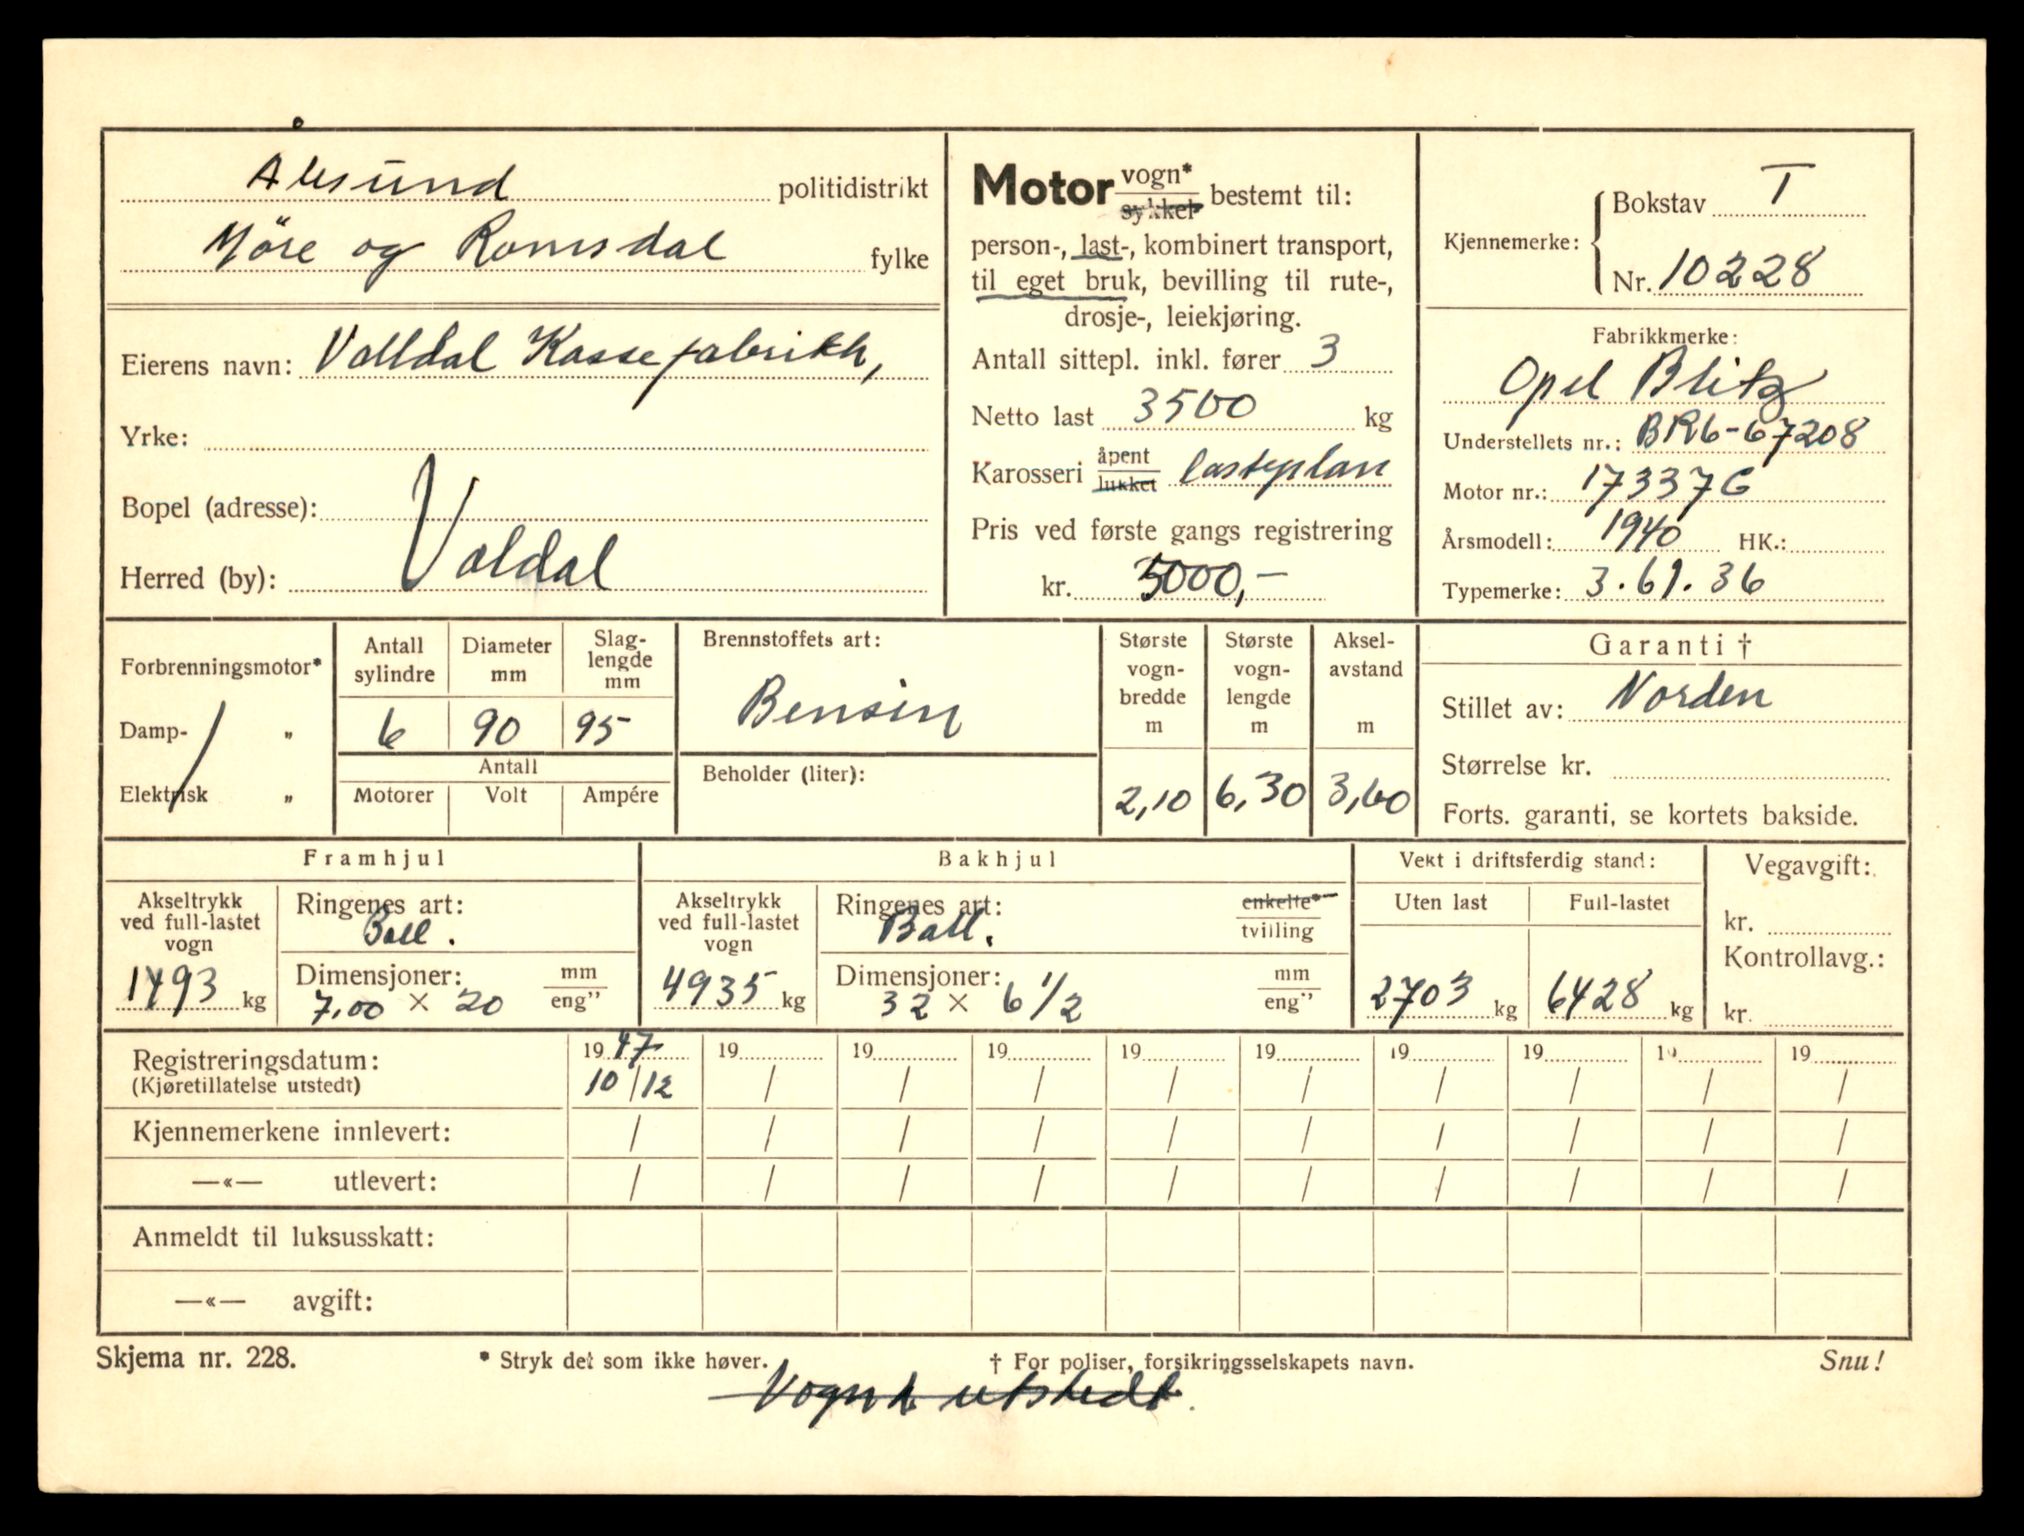 Ålesund politidistrikt
Møre og Romsdal fylke
Eierens navn: Valldal Kassefabrikk,
Yrke:
Bopel (adresse):
Herred (by): Valdal
Motor vogn* / sykkel bestemt til:
person-, last-, kombinert transport,
til eget bruk, bevilling til rute-,
drosje-, leiekjøring.
Antall sittepl. inkl. fører 3
Netto last 3500 kg
Karosseri åpent / lukket lasteplan
Pris ved første gangs registrering
kr. 5000,-
Kjennemerke: Bokstav T
Nr. 10228
Fabrikkmerke:
Opel Blitz
Understellets nr.: BR6-67208
Motor nr.: 17337G
Årsmodell: 1940 HK.:
Typemerke: 3.61.36
Forbrenningsmotor*
Damp- "
Elektrisk "
Antall sylindre Diameter mm Slag-lengde mm
6 90 95
Antall
Motorer Volt Ampére
Brennstoffets art:
Bensin
Beholder (liter):
Største vogn-bredde m Største vogn-lengde m Aksel-avstand m
2,10 6,30 3,60
Garanti †
Stillet av: Norden
Størrelse kr.
Forts. garanti, se kortets bakside.
Framhjul
Akseltrykk ved full-lastet vogn
1493 kg
Ringenes art:
Ball.
Dimensjoner: mm / eng"
7.00 × 20
Bakhjul
Akseltrykk ved full-lastet vogn
4935 kg
Ringenes art: enkelte* / tvilling
Ball.
Dimensjoner: mm / eng"
32 × 6 1/2
Vekt i driftsferdig stand:
Uten last Full-lastet
2703 kg 6428 kg
Vegavgift:
kr.
Kontrollavg.:
kr.
Registreringsdatum: 1947 19 19 19 19 19 19 19 19 19
(Kjøretillatelse utstedt) 10/12 / / / / / / / / /
Kjennemerkene innlevert: / / / / / / / / / /
—«— utlevert: / / / / / / / / / /
Anmeldt til luksusskatt:
—«— avgift:
Skjema nr. 228. * Stryk det som ikke høver. † For poliser, forsikringsselskapets navn. Snu!
utstedt.